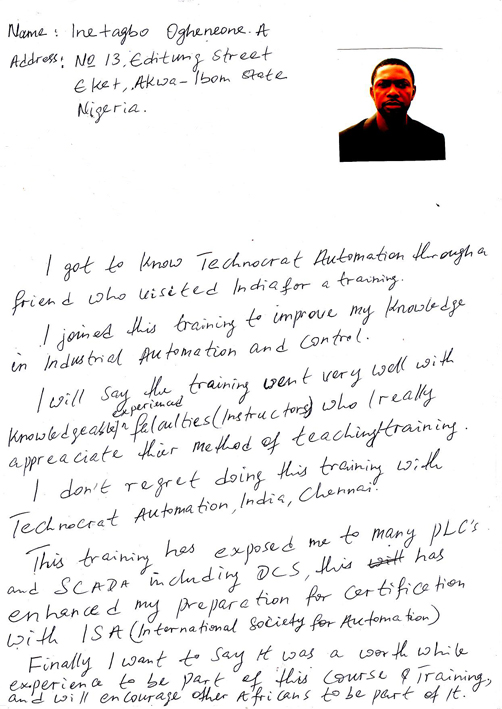 Name: Inetagbo Ogheneone. A
Address: No 13, Editung Street
Eket, Akwa-Ibom State
Nigeria.
I got to know Technocrat Automation through a
friend who visited India for a training.
I joined this training to improve my knowledge
in Industrial Automation and control.
I will say the training went very well with
knowledgeable, experienced felculties (Instructors) who I really
appreaciate thier method of teaching/training.
I don't regret doing this training with
Technocrat Automation, India, Chennai.
This training has exposed me to many PLC's
and SCADA including DCS, this will has
enhanced my preparation for certification
with ISA (International Society for Automation)
Finally I want to say it was a worth while
experience to be part of this course & Training,
and will encourage other Africans to be part of it.